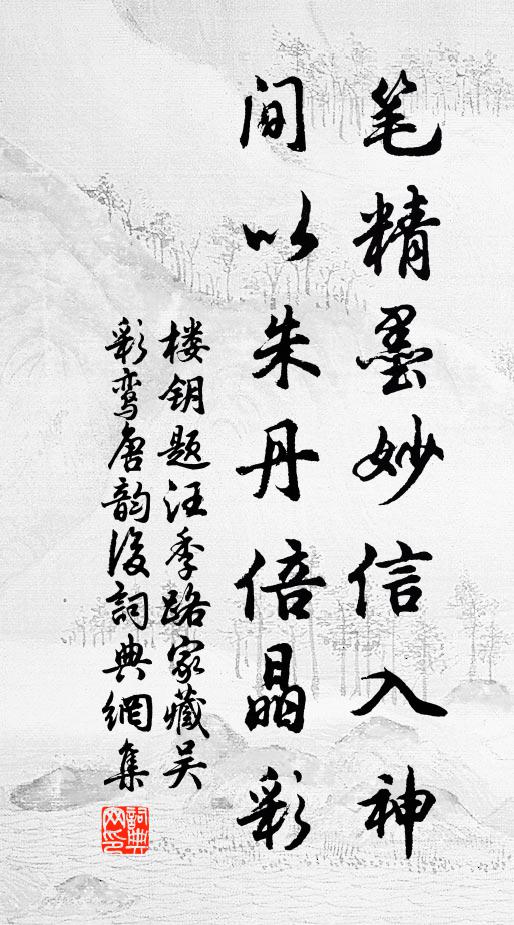 笔精墨妙信入神
间以朱丹倍晶彩
楼钥题汪季路家藏吴
彩鸾唐韵后詞典網集
詞典网印